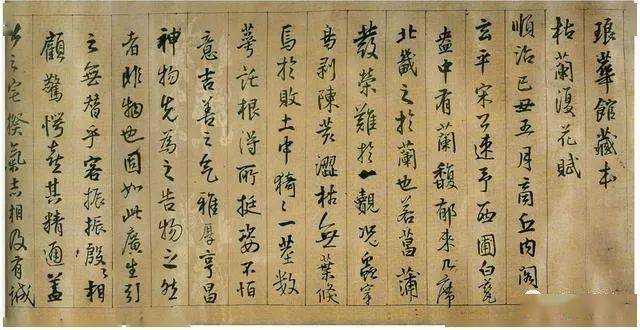 琅華館藏本
枯蘭復花賦
順治己丑五月商丘内閣
玄平宋公速予西圃白瓷
盎中有蘭馥郁來几席
北畿之於蘭也若菖蒲
發榮難於一覯況蟲穿
鳥剥陳荄澀枯無葉倏
焉於敗土中猗猗一莖數
萼託根得所挺姿不怕
意吉善之气雅厚亨昌
神物先為之告物之然
者即物也固如此廣生引
之無替乎客振振殷殷相
顧驚愕喜其精通蓋
之宅揆氣志相及有誠